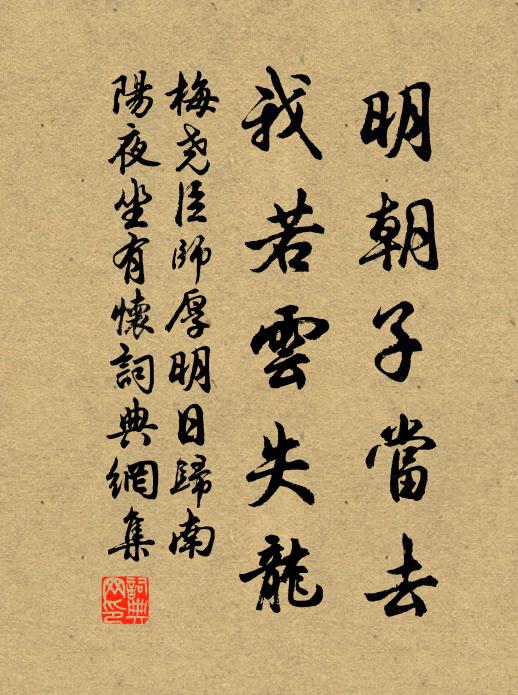 明朝子當去
我若雲失龍
梅堯臣師厚明日歸南
陽夜坐有懷詞典網集
詞典网印